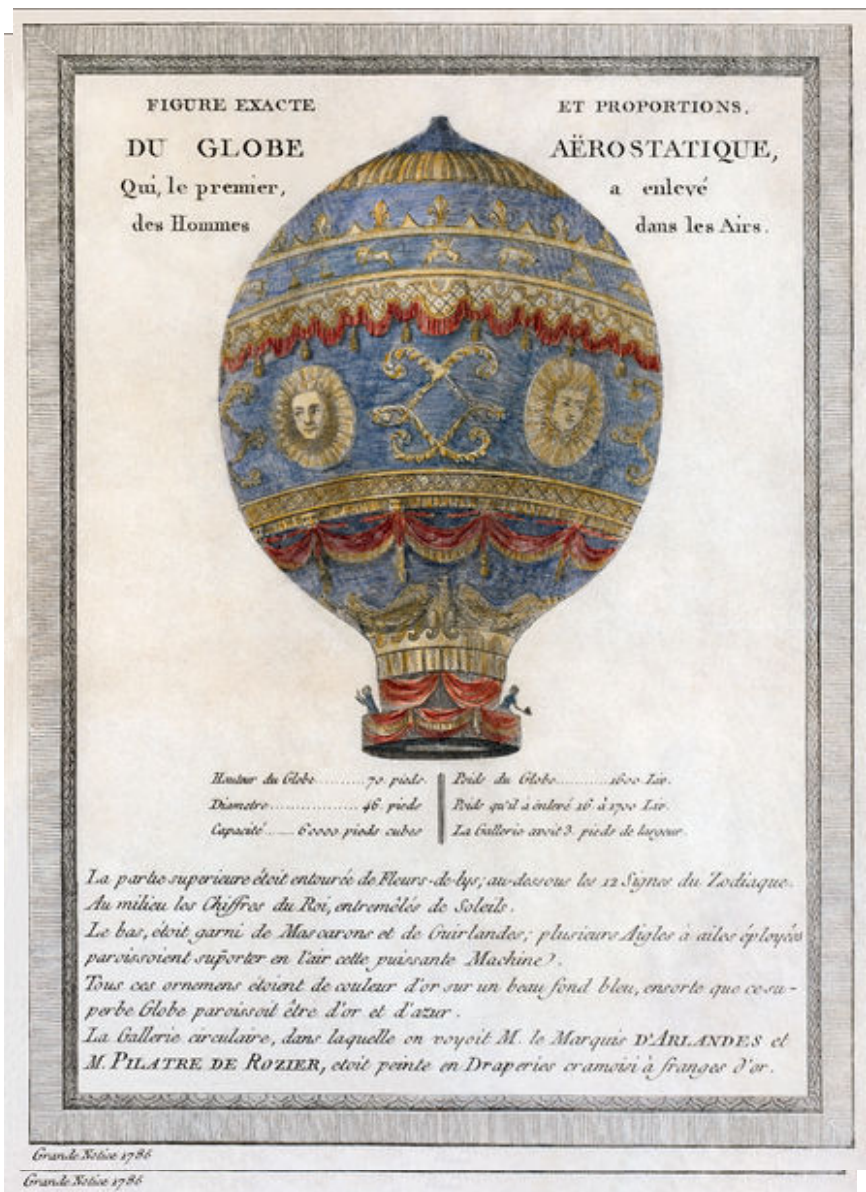 FIGURE EXACTE ET PROPORTIONS,
DU GLOBE AËROSTATIQUE,
Qui, le premier, a enlevé
des Hommes dans les Airs.
Hauteur du Globe..........70 pieds.
Diametre..................46 pieds
Capacité......60000 pieds cubes
Poids du Globe..........1600 Liv.
Poids qu'il à enlevé 16 à 1700 Liv.
La Gallerie avoit 3. pieds de largeur.
La partie superieure étoit entourée de Fleurs-de-lys; au-dessous les 12 Signes du Zodiaque.
Au milieu les Chiffres du Roi, entremêlés de Soleils.
Le bas, étoit garni de Mascarons et de Guirlandes; plusieurs Aigles à ailes éployées
paroissoient suporter en l'air cette puissante Machine.
Tous ces ornemens étoient de couleur d'or sur un beau fond bleu, ensorte que ce su-
perbe Globe paroissoit être d'or et d'azur.
La Gallerie circulaire, dans laquelle on voyoit M. le Marquis D'ARLANDES et
M. PILATRE DE ROZIER, etoit peinte en Draperies cramoisi à franges d'or.
Grande Notice 1786
Grande Notice 1786